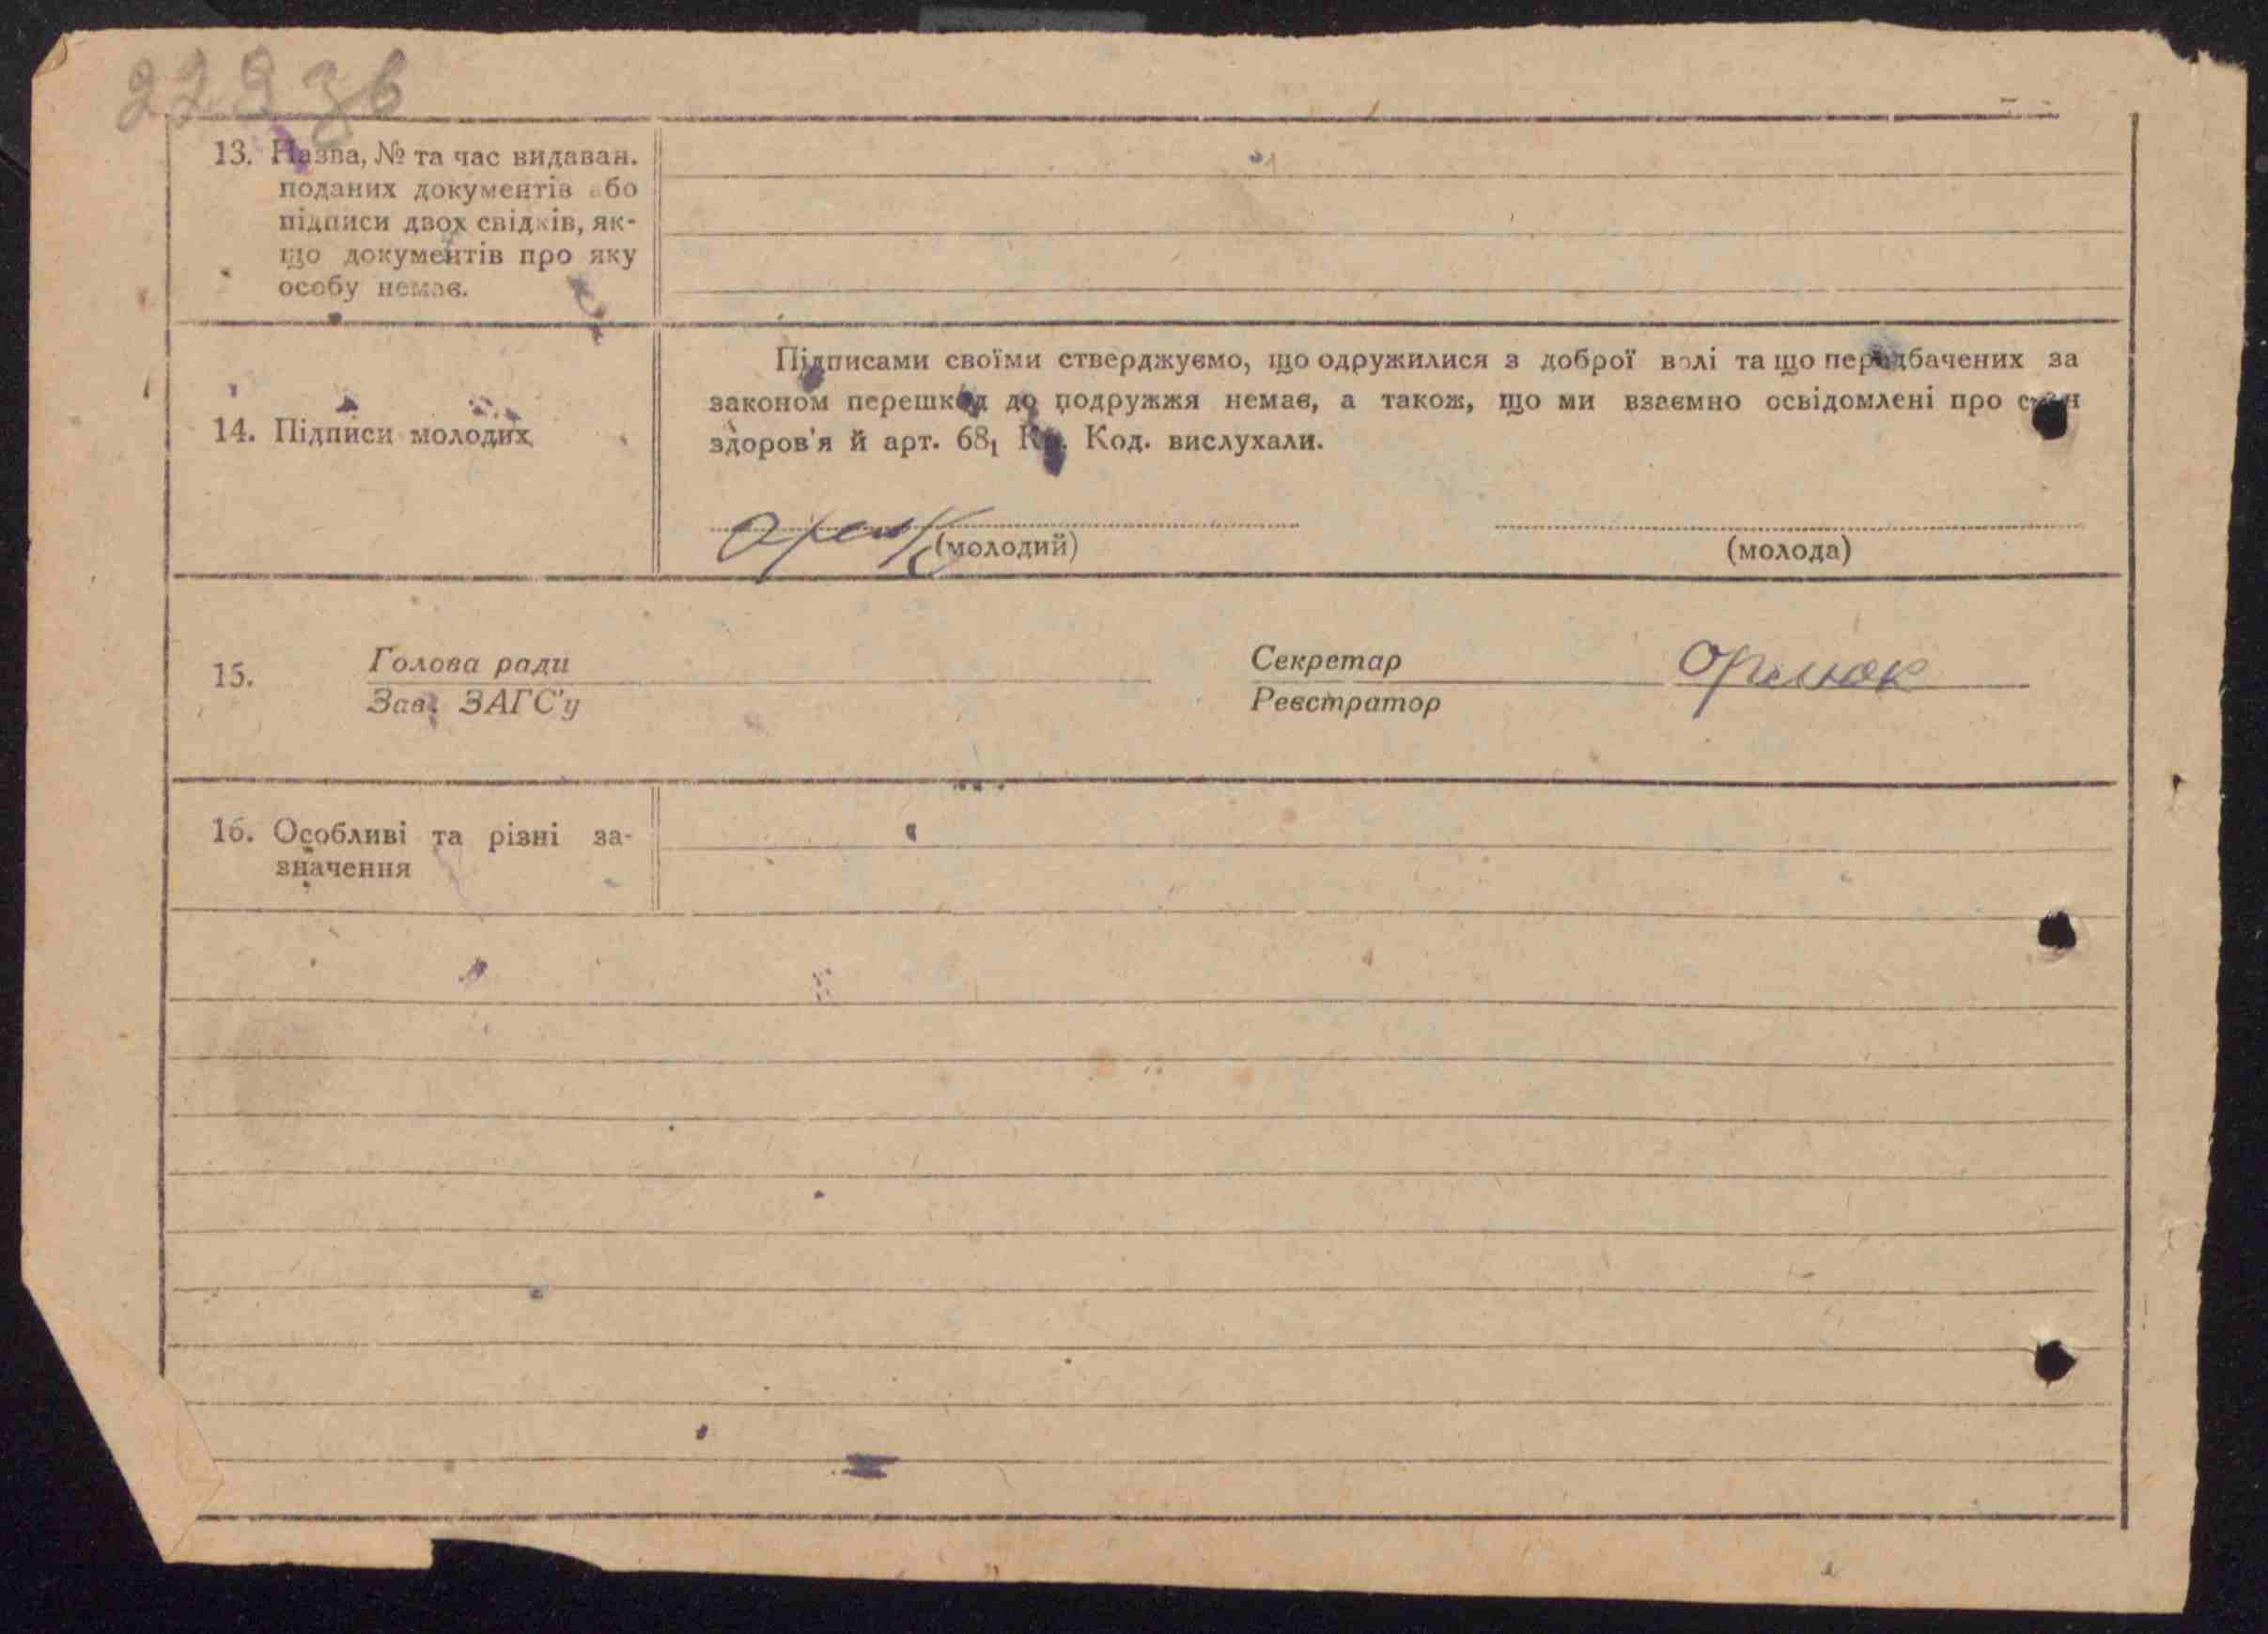 223 зв
13. Назва, № та час видаван.
поданих документів або
підписи двох свідків, як-
що документів про яку
особу немає.
Підписами своїми стверджуємо, що одружилися з доброї волі та що передбачених за
законом перешкод до подружжя немає, а також, що ми взаємно освідомлені про стан
здоров'я й арт. 68₁ Кр. Код. вислухали.
14. Підписи молодих
(молодий)
(молода)
15. Голова ради
Зав. ЗАГС'у
Секретар
Реєстратор
16. Особливі та різні за-
значення